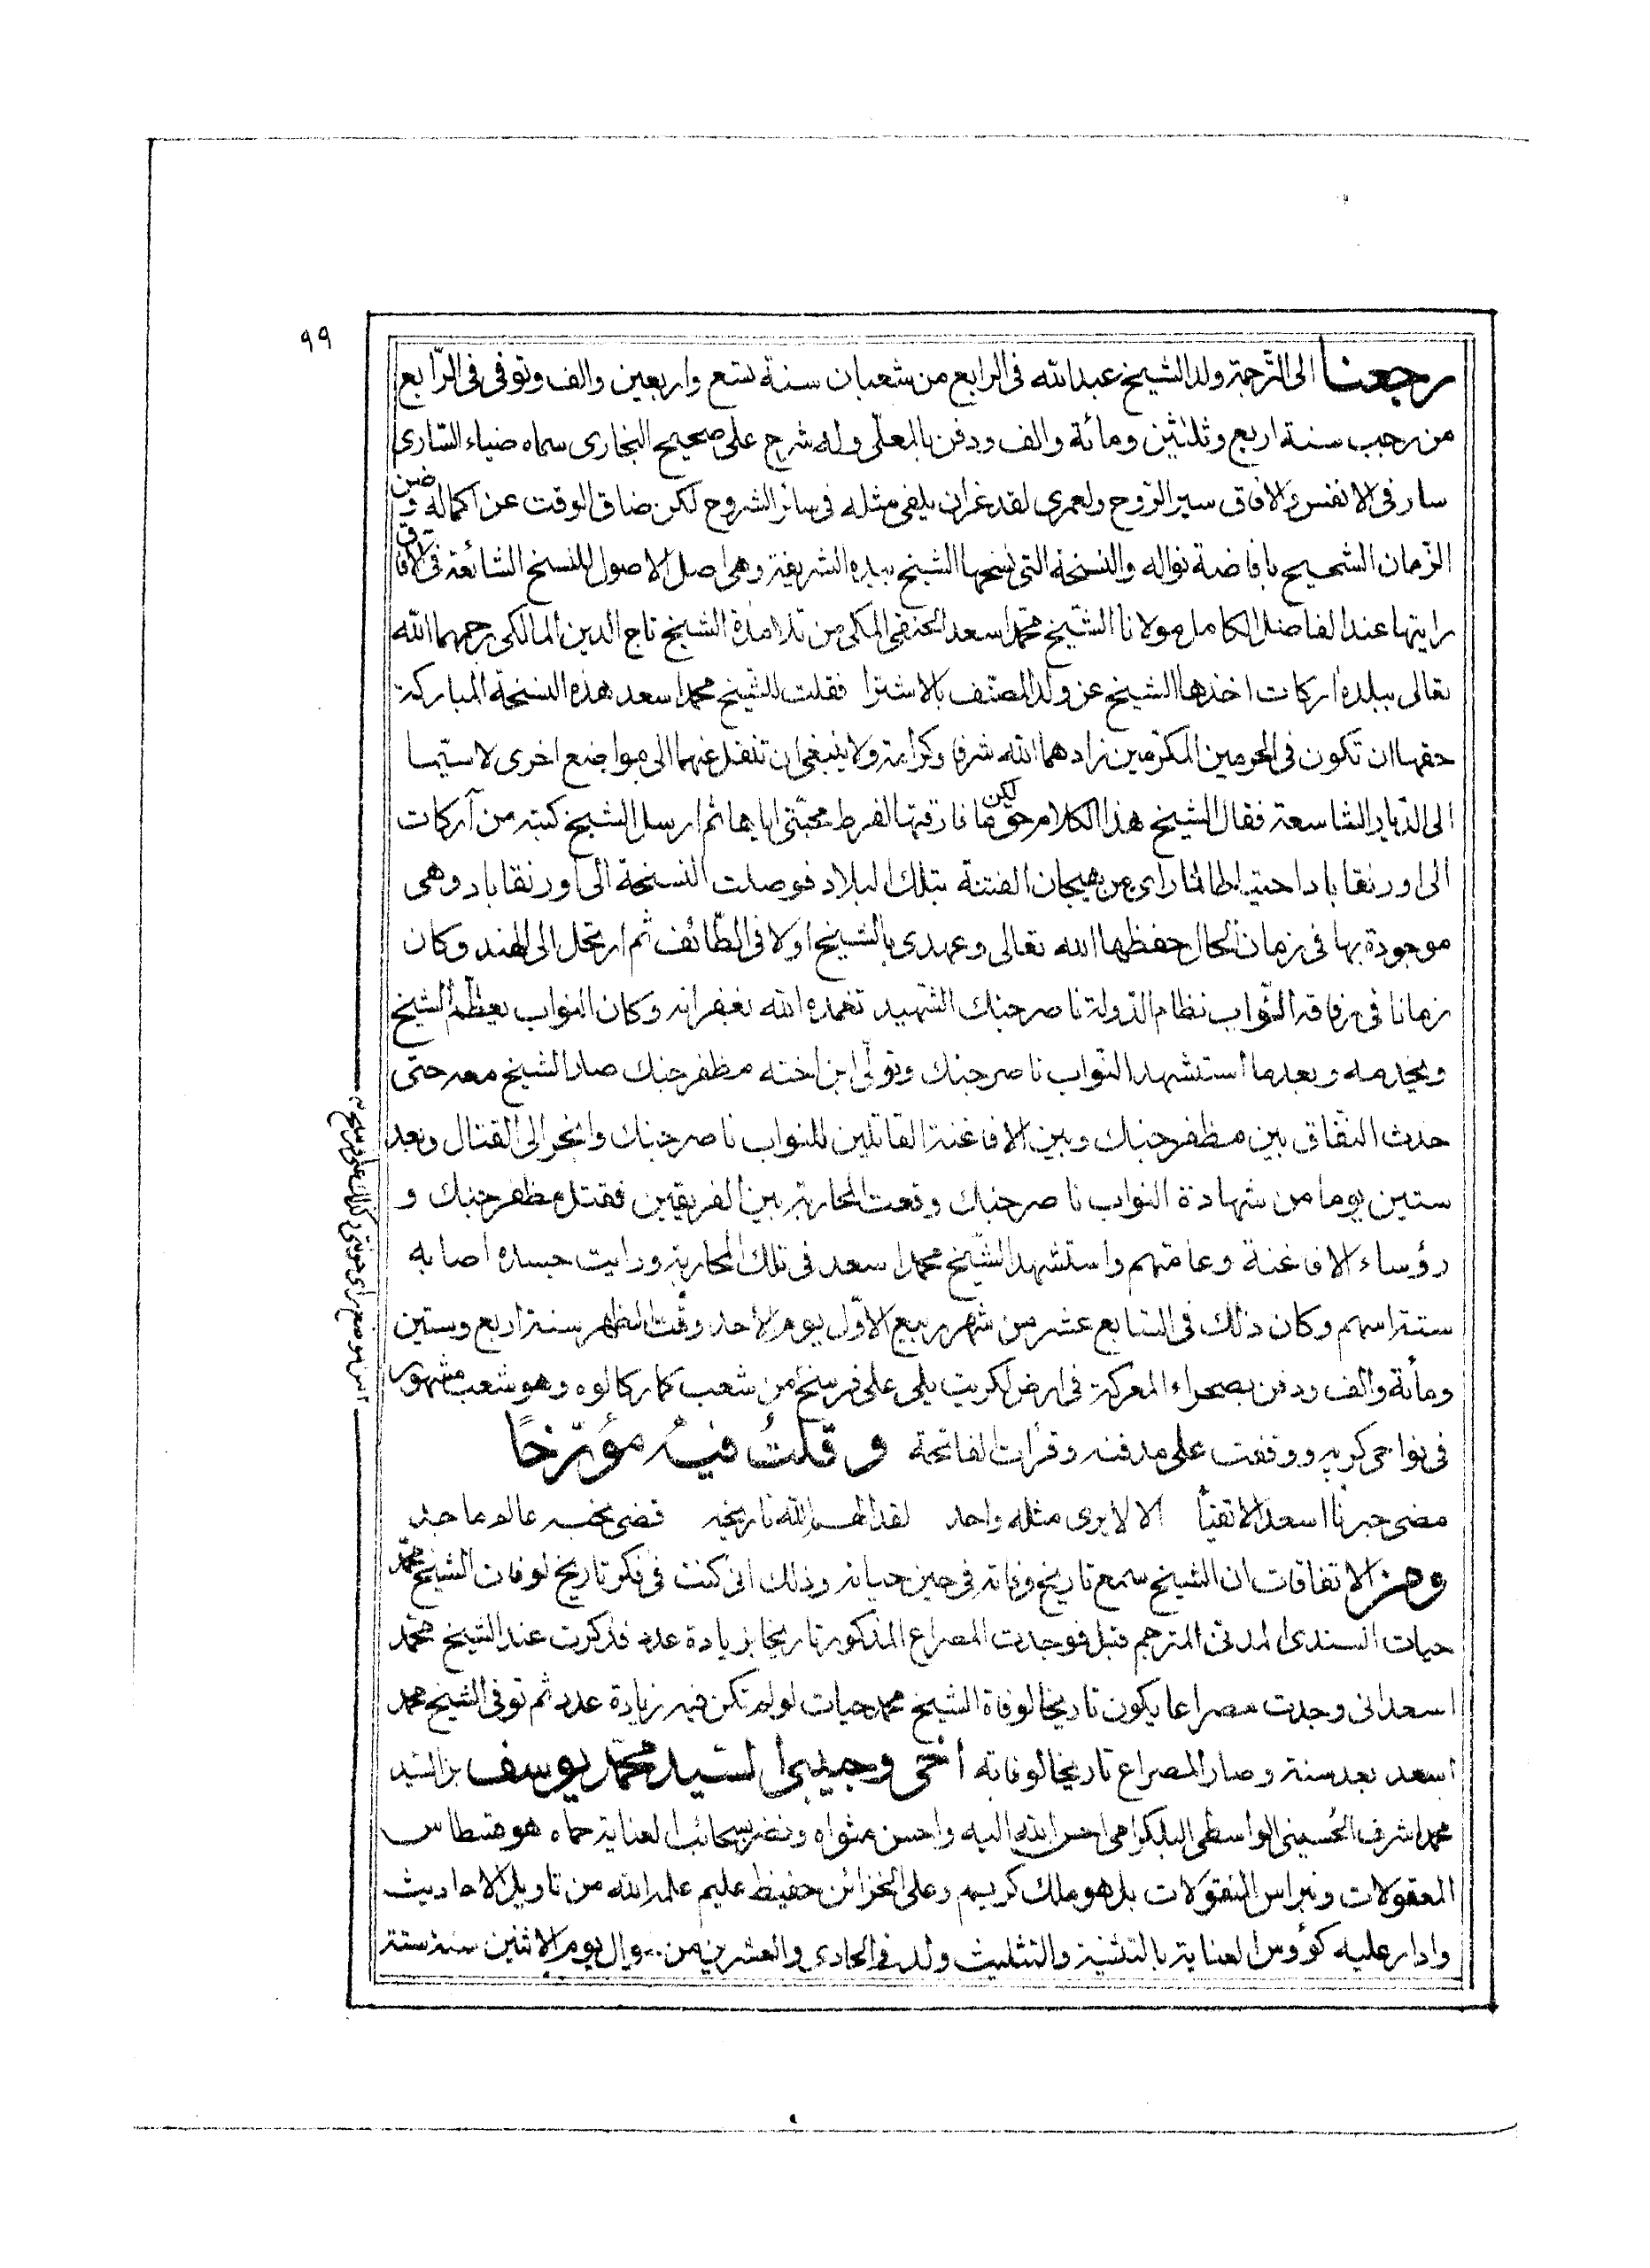 ٩٩
رجعنا الى الترجمة ولد الشيخ عبد الله فى الرابع من شعبان سنة تسع واربعين والف وتوفى فى الرّابع
من رجب سنة اربع وثلثين ومائة والف ودفن بالمعلّى وله شرح على صحيح البخارى سماه ضياء السّارى
سار فى الانفس والافاق سير الرّوح ولعمرى لقد عزان يلفى مثله فى سائر الشروح لكن ضاق الوقت عن اكماله و ضن
الزّمان الشحيح بافاضة نواله والنسخة التى نسخها الشيخ بيده الشريفة وهى اصل الاصول للنسخ الشائعة فى الافاق
رايتها عند الفاضل الكامل مولانا الشّيخ محمد اسعد الحنفى المكى من تلامذة الشيخ تاج الدين المالكى رحمهما الله
تعالى ببلدة اركات اخذها الشيخ عن ولد المصنّف بالاشترا فقلت للشّيخ محمد اسعد هذه النسخة المباركة
حقها ان تكون فى الحرمين المكرّمين زادهما الله شرفا وكرامة ولا ينبغى ان تنقل عنهما الى مواضع اخرى لا سيّما
الى الدّيار الشاسعة فقال الشيخ هذا الكلام حق لكن ما فارقتها لفرط محبّتى اياها ثم ارسل الشيخ كتبه من آركات
الى اورنقاباد احتياطا لما راى من هيجان الفتنة بتلك البلاد فوصلت النسخة الى اورنقاباد وهى
موجودة بها فى زمان الحال حفظها الله تعالى وعهدى بالشيخ اولا فى الطّائف ثم ارتحل الى الهند وكان
زمانا فى رفاقة النّواب نظام الدّولة ناصر جنك الشّهيد تغمده الله بغفرانه وكان النواب يعظّم الشيخ
ويخدمه وبعد ما استشهد النّواب ناصر جنك وتولّى ابن اخته مظفر جنك صار الشيخ معه حتى
حدث النّفاق بين مظفر جنك وبين الافاغنة القاتلين للنواب ناصر جنك وانجر الى القتال وبعد
ستين يوما من شهادة النواب ناصر جنك وقعت المحاربة بين الفريقين فقتل مظفر جنك و
رؤساء الافاغنة وعامتهم واستشهد الشّيخ محمد اسعد فى تلك المحاربة ورايت جسده اصابه
ستة اسهم وكان ذلك فى السّابع عشر من شهر ربيع الاوّل يوم الأحد وقت الظهر سنة اربع وستين
ومأئة والف ودفن بصحراء المعركة فى ارض لكريت پلى على فرسخ من شعب كمار كالوه وهو شعب مشهور
فى نواحى كرپه ووقفت على مدفنه وقرأت الفاتحة و قلتُ فيه مؤرّخاً
مضى حبرنا اسعد الاتقيا الا لا يرى مثله واحد لقد الهم الله تاريخه قضى نحبه عالم ماجد
ومن الاتفاقات ان الشيخ سمع تاريخ وفاته فى حين حياته وذلك انى كنت فى فكر تاريخ لوفات الشيخ محمّد
حيات السندى المدنى المترجم قبل فوجدت المصراع المذكور تاريخا بزيادة عدد فذكرت عند الشيخ محمّد
اسعد انى وجدت مصراعا يكون تاريخا لوفاة الشيخ محمد حيات لو لم تكن فيه زيادة عدد ثم توفى الشيخ محمد
اسعد بعد سنة وصار المصراع تاريخا لوفاته أخى وحبيبى السّيد محمّد يوسف بن السّيد
محمد اشرف الحُسينى الواسطى البلكرامى احسن الله اليه واحسن مثواه ونضر بسحائب العناية حماه هو قسطاس
المعقولات ونبراس المنقولات بل هو ملك كريم وعلى الخزائن حفيظ عليم علمه الله من تاويل الاحاديث
وادار عليه كؤوس العناية بالتثنية والتثليث ولد فى الحادى والعشرين من وال يوم الاثنين سنة ستة